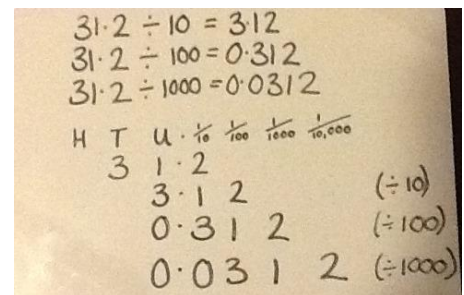 31·2 ÷ 10 = 3·12
31·2 ÷ 100 = 0·312
31·2 ÷ 1000 = 0·0312
H T U · 1/10 1/100 1/1000 1/10,000
3 1 · 2
3 · 1 2 (÷10)
0 · 3 1 2 (÷100)
0 · 0 3 1 2 (÷1000)